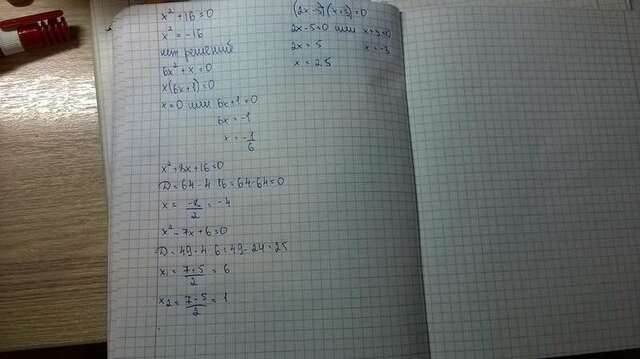 x² + 16 = 0
x² = -16
нет решений
6x² + x = 0
x(6x+1) = 0
x = 0 или 6x+1=0
6x = -1
x = -1/6
x² + 8x + 16 = 0
D = 64 - 4·16 = 64-64=0
x = -8/2 = -4
x² - 7x + 6 = 0
D = 49 - 4·6 = 49 - 24 = 25
x₁ = 7+5/2 = 6
x₂ = 7-5/2 = 1
(2x-5)(x+3)=0
2x-5=0 или x+3=0
2x = 5 x = -3
x = 2,5